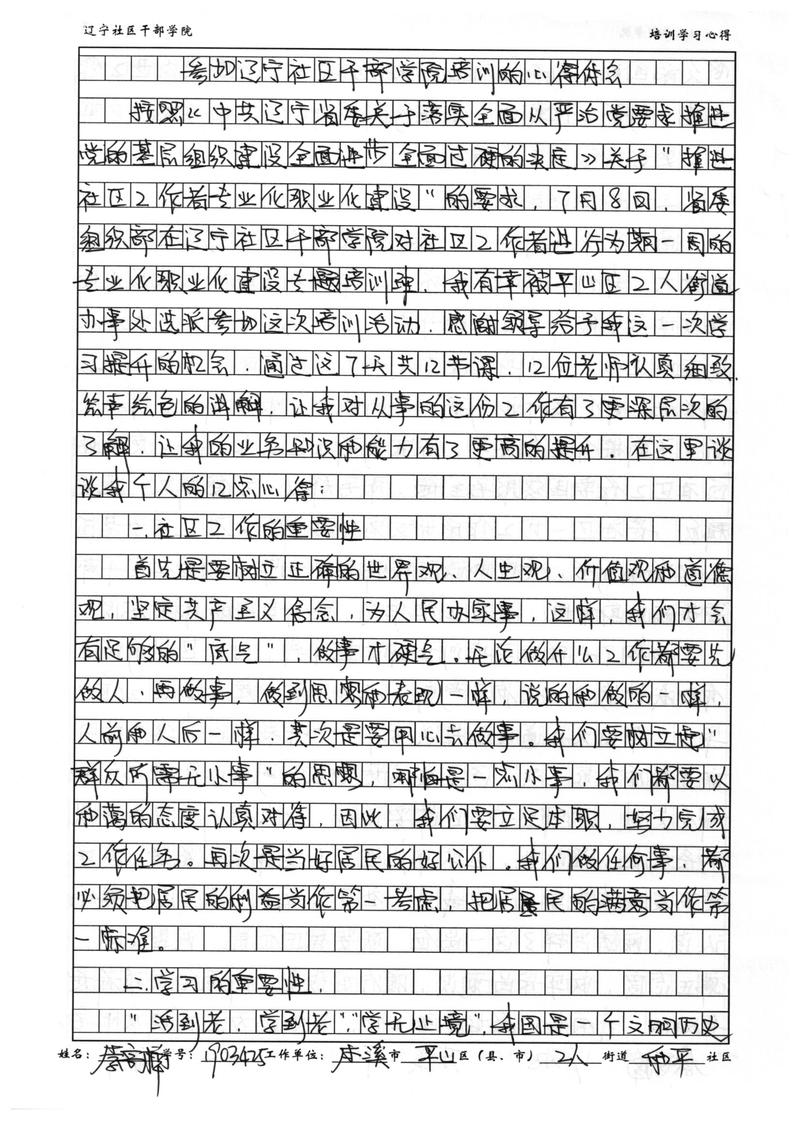 辽宁社区干部学院 培训学习心得
参加辽宁社区干部学院培训的心得体会
按照《中共辽宁省委关于落实全面从严治党要求推进
党的基层组织建设全面进步全面过硬的决定》关于“推进
社区工作者专业化职业化建设”的要求，7月8日，省委
组织部在辽宁社区干部学院对社区工作者进行为期一周的
专业化职业化建设专题培训班，我有幸被平山区工人街道
办事处选派参加这次培训活动，感谢领导给予我这一次学
习提升的机会，通过这7天共12节课，12位老师认真细致
绘声绘色的讲解，让我对从事的这份工作有了更深层次的
了解，让我的业务知识和能力有了更高的提升。在这里谈
谈我个人的几点心得：
一.社区工作的重要性
首先是要树立正确的世界观、人生观、价值观和道德
观，坚定共产主义信念，为人民办实事，这样，我们才会
有足够的“底气”，做事才硬气。无论做什么工作都要先
做人，再做事，做到思想和表现一样，说的和做的一样，
人前和人后一样，其次是要用心去做事。我们要树立起“
群众所需无小事”的思想，哪怕是一点小事，我们都要以
和蔼的态度认真对待，因此，我们要立足本职，努力完成
工作任务。再次是当好居民的好公仆。我们做任何事，都
必须把居民的利益当作第一考虑，把居民的满意当作第
一标准。
二.学习的重要性.
“活到老，学到老”，“学无止境”，我国是一个文明历史
姓名： 学号：1903425 工作单位：本溪 市 平山 区（县、市） 工人 街道 和平 社区